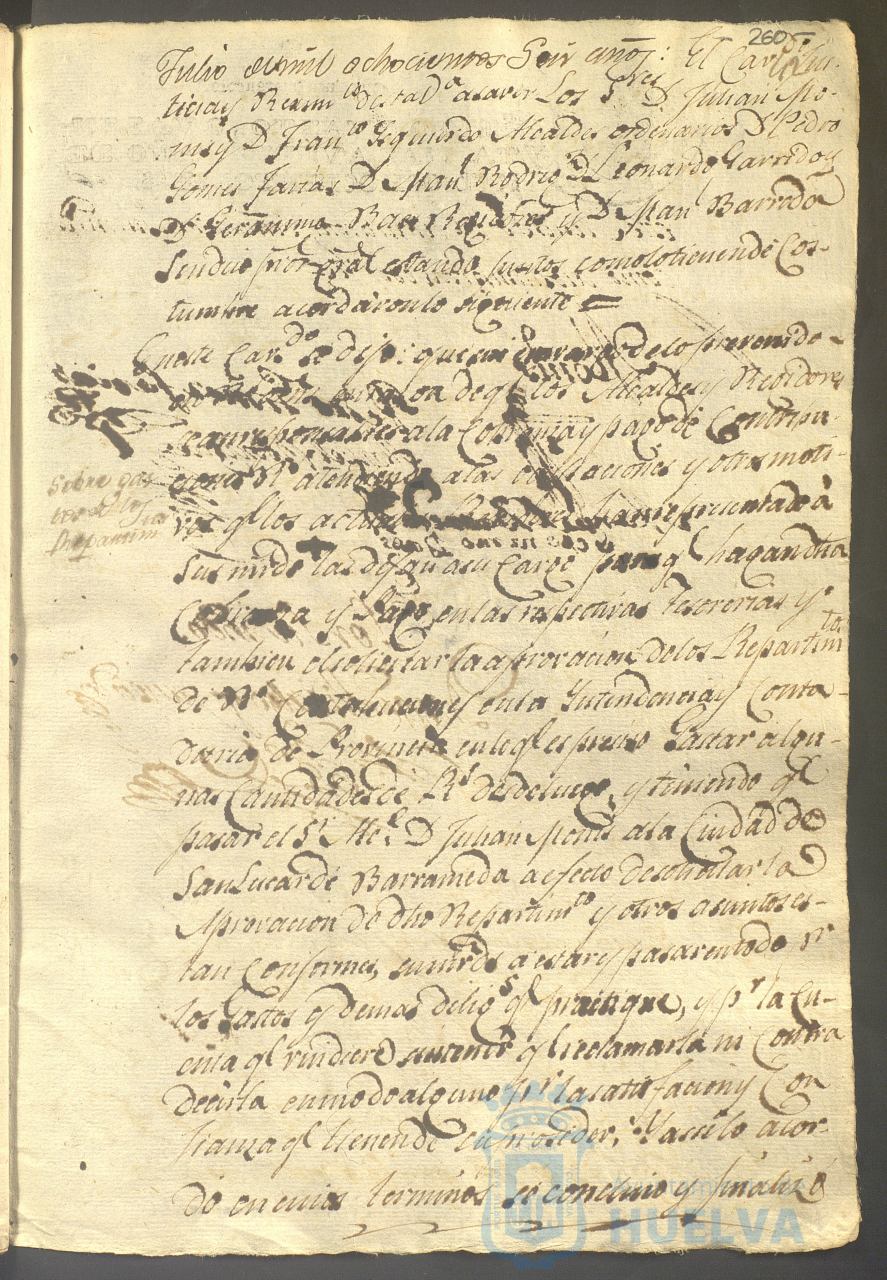 260
Julio de mil ochocientos Seis años: El Cav.do Jus-
ticia y Reximto de esta Va a saver Los Sres D. Julian Mo-
nis y D. Franco Ysquierdo Alcaldes ordinarios D. Pedro
Gomes Farias D. Manl Rodrigs D. Leonardo Garrido y
Dn Geronimo Rexidores y D. Manl Barreda
Sindico prior gral estando juntos como lo tienen de Cos-
tumbre acordaron lo siguiente =
En este Cavdo se dijo: que sin embargo de lo prevenido
en razon de q. los Alcaldes y Rexidores
sean responsables a la Cobranza y pago de Contribu-
ciones Rs atendiendo a las ocupaciones y otros moti-
vos q. los han representado a
Sus mrds las de su cargo para q. hagan dha
Cobranza y Pago en las respectivas tesorerias y
tambien el solicitar la aprovacion de los Repartimtos
de Rs Contribuciones en la Yntendencia y Conta-
duria de Provincia en lo q. es preciso Gastar algu-
nas Cantidades de Rs desde luego, y teniendo q.
pasar el Sr Alce D. Julian Monis a la Ciudad de
San Lucar de Barrameda a efecto de solicitar la
Aprovacion de dho Repartimto y otros asuntos es-
tan Conformes, sus mrds a estar y pasar en todo pr
los Gastos y demas diligs q. practique, y pr la Cu-
enta q. rindiere sin tener q. reclamarla ni Contra
decirla en modo alguno pr la satisfacion y Con
fianza q. tienen de su proceder. Y asi lo acor-
dó en cuios terminos se concluio y finalizó
Sobre gas
tos de los
Repartimtos
HUELVA